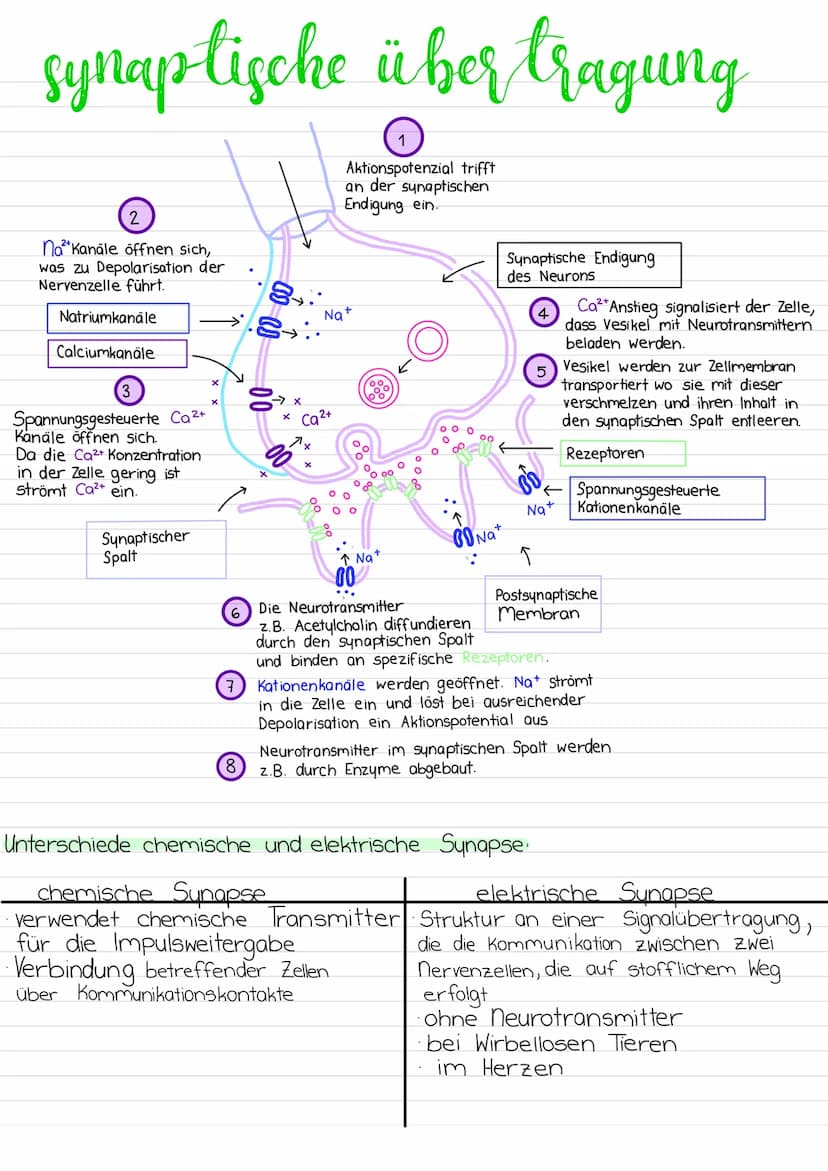 synaptische übertragung
1
Aktionspotenzial trifft
an der synaptischen
Endigung ein.
2
Na²⁺ Kanäle öffnen sich,
was zu Depolarisation der
Nervenzelle führt.
Natriumkanäle
Calciumkanäle
3
Spannungsgesteuerte Ca²⁺
Kanäle öffnen sich.
Da die Ca²⁺ Konzentration
in der Zelle gering ist
strömt Ca²⁺ ein.
Synaptischer
Spalt
Na⁺
Ca²⁺
Synaptische Endigung
des Neurons
4
Ca²⁺ Anstieg signalisiert der Zelle,
dass Vesikel mit Neurotransmittern
beladen werden.
5
Vesikel werden zur Zellmembran
transportiert wo sie mit dieser
verschmelzen und ihren Inhalt in
den synaptischen Spalt entleeren.
Rezeptoren
Spannungsgesteuerte
Kationenkanäle
Na⁺
Na⁺
Na⁺
Postsynaptische
Membran
6
Die Neurotransmitter
z.B. Acetylcholin diffundieren
durch den synaptischen Spalt
und binden an spezifische Rezeptoren.
7
Kationenkanäle werden geöffnet. Na⁺ strömt
in die Zelle ein und löst bei ausreichender
Depolarisation ein Aktionspotential aus
8
Neurotransmitter im synaptischen Spalt werden
z.B. durch Enzyme abgebaut.
Unterschiede chemische und elektrische Synapse:
chemische Synapse
· verwendet chemische Transmitter
für die Impulsweitergabe
· Verbindung betreffender Zellen
über Kommunikationskontakte
elektrische Synapse
· Struktur an einer Signalübertragung,
die die Kommunikation zwischen zwei
Nervenzellen, die auf stofflichem Weg
erfolgt
· ohne Neurotransmitter
· bei Wirbellosen Tieren
· im Herzen